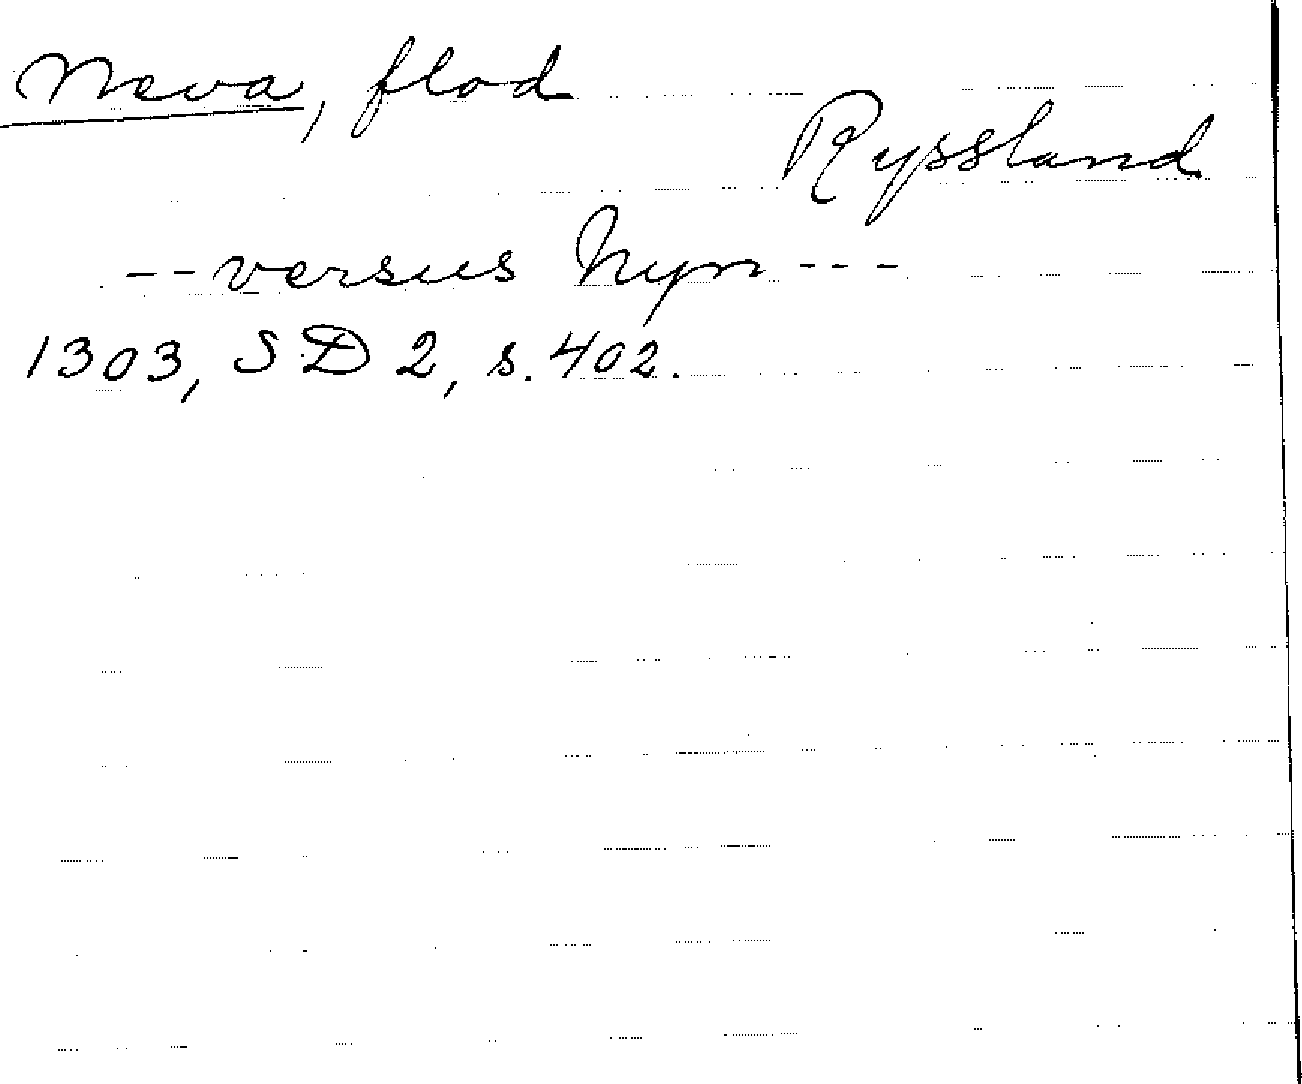 Neva, flod
Ryssland
--versus Nyn---
1303, SD 2, s. 402.